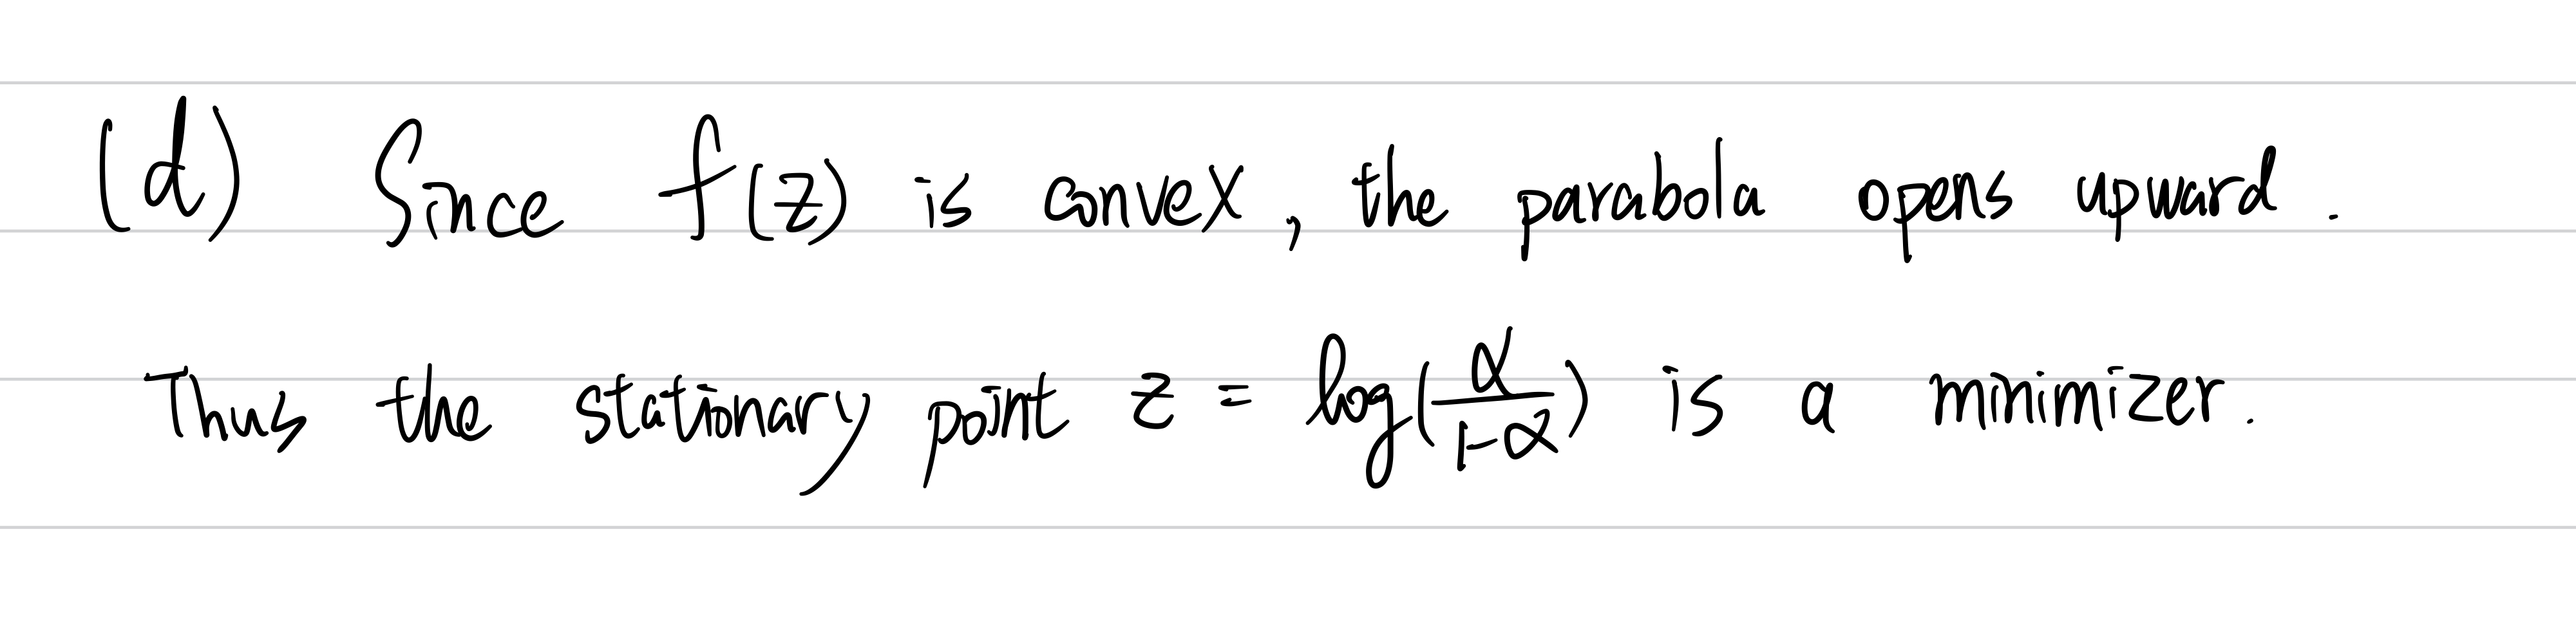 (d) Since f(z) is convex, the parabola opens upward.
Thus the stationary point z = log(α/1-α) is a minimizer.